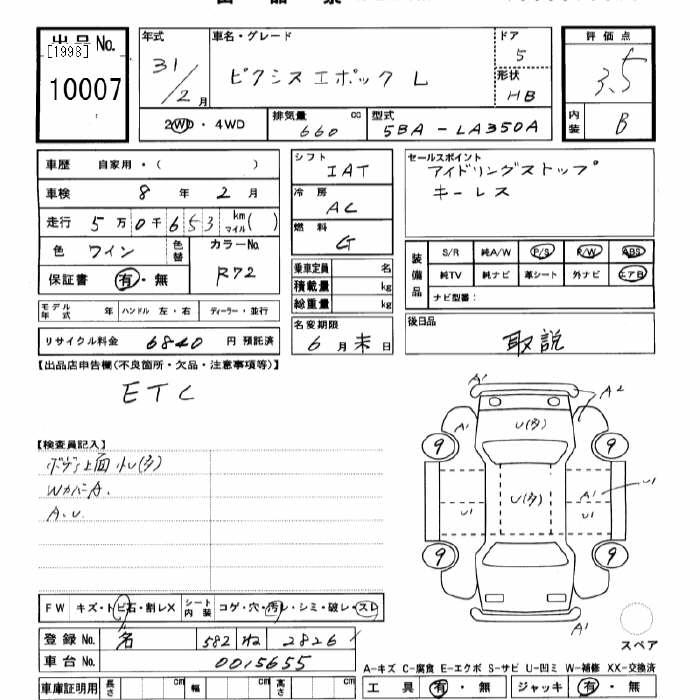 出品No.
[1993]
10007
年式
31/2月
車名・グレード
ピクシスエポック L
ドア
5
形状
HB
評価点
3.5
内装
B
2WD・4WD
排気量
660
cc
型式
5BA-LA350A
車歴 自家用・( )
車検 8年 2月
走行 5万0千653 km マイル( )
色 ワイン
色替
カラーNo.
R72
保証書 有・無
シフト
IAT
冷房
AC
燃料
G
セールスポイント
アイドリングストップ
キーレス
乗車定員 名
積載量 kg
総重量 kg
装備品
S/R 純A/W P/S P/W ABS
純TV 純ナビ 革シート 外ナビ エアB
ナビ型番:
モデル年式 年 ハンドル 左・右 ディーラー・並行
リサイクル料金 6840 円 預託済
名変期限
6月末日
後日品
取説
【出品店申告欄(不良箇所・欠品・注意事項等)】
ETC
【検査員記入】
ボディ上面小U(多)
WカバーA.
A.U.
A'
A2
A'
U(多)
9
9
U(多)
A'
U1
U1
U1
9
9
A'
スペア
FW キズ・トビ石・割レX
シート内装 コゲ・穴・汚レ・シミ・破レ・スレ
登録No. 名 582 ね 2826
車台No. 0015655
車庫証明用 長さ cm 幅 cm 高さ cm
A-キズ C-腐食 E-エクボ S-サビ U-凹ミ W-補修 XX-交換済
工具 有・無 ジャッキ 有・無